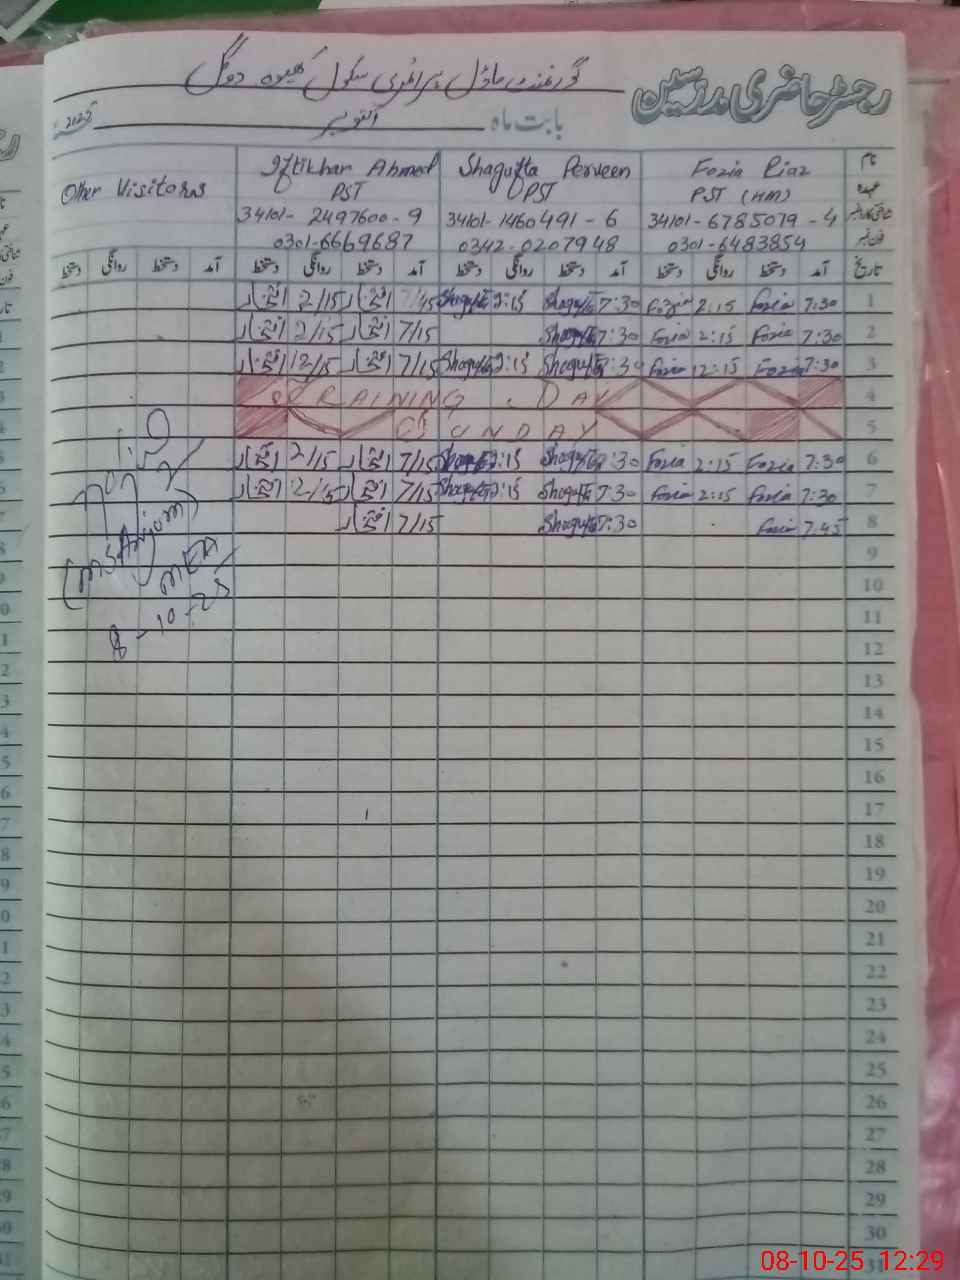 رجسٹر حاضری مدرسین
گورنمنٹ ماڈل پرائمری سکول
بابت ماہ اکتوبر 2025ء
نام Fozia Riaz Shagufta Perveen Iftikhar Ahmed Other Visitors
عہدہ PST (HM) PST PST
شناختی کارڈ نمبر 34101-6785079-4 34101-1460491-6 34101-2497600-9
فون نمبر 0301-6483854 0342-0207948 0301-6669687
تاریخ آمد دستخط روانگی دستخط آمد دستخط روانگی دستخط آمد دستخط روانگی دستخط آمد دستخط روانگی دستخط
1 7:30 Fozia 2:15 Fozia 7:30 Shagufta 2:15 Shagufta 7/15 افتخار 2/15 افتخار
2 7:30 Fozia 2:15 Fozia 7:30 Shagufta 7/15 افتخار 2/15 افتخار
3 7:30 Fozia 12:15 Fozia 7:30 Shagufta 2:15 Shagufta 7/15 افتخار 12/15 افتخار
4 RAINING DAY
5 SUNDAY
6 7:30 Fozia 2:15 Fozia 7:30 Shagufta 2:15 Shagufta 7/15 افتخار 2/15 افتخار
7 7:30 Fozia 2:15 Fozia 7:30 Shagufta 2:15 Shagufta 7/15 افتخار 2/15 افتخار
8 7:45 Fozia 7:30 Shagufta 7/15 افتخار
(MS Anjum)
MEA
8-10-25
9
10
11
12
13
14
15
16
17
18
19
20
21
22
23
24
25
26
27
28
29
30
31
08-10-25 12:29